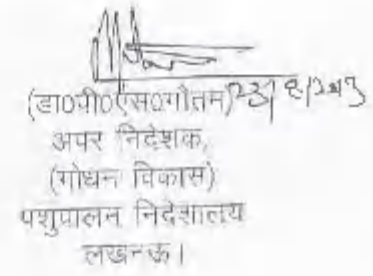 (डा०पी०एस०गौतम)
अपर निदेशक,
(गोधन विकास)
पशुपालन निदेशालय
लखनऊ।